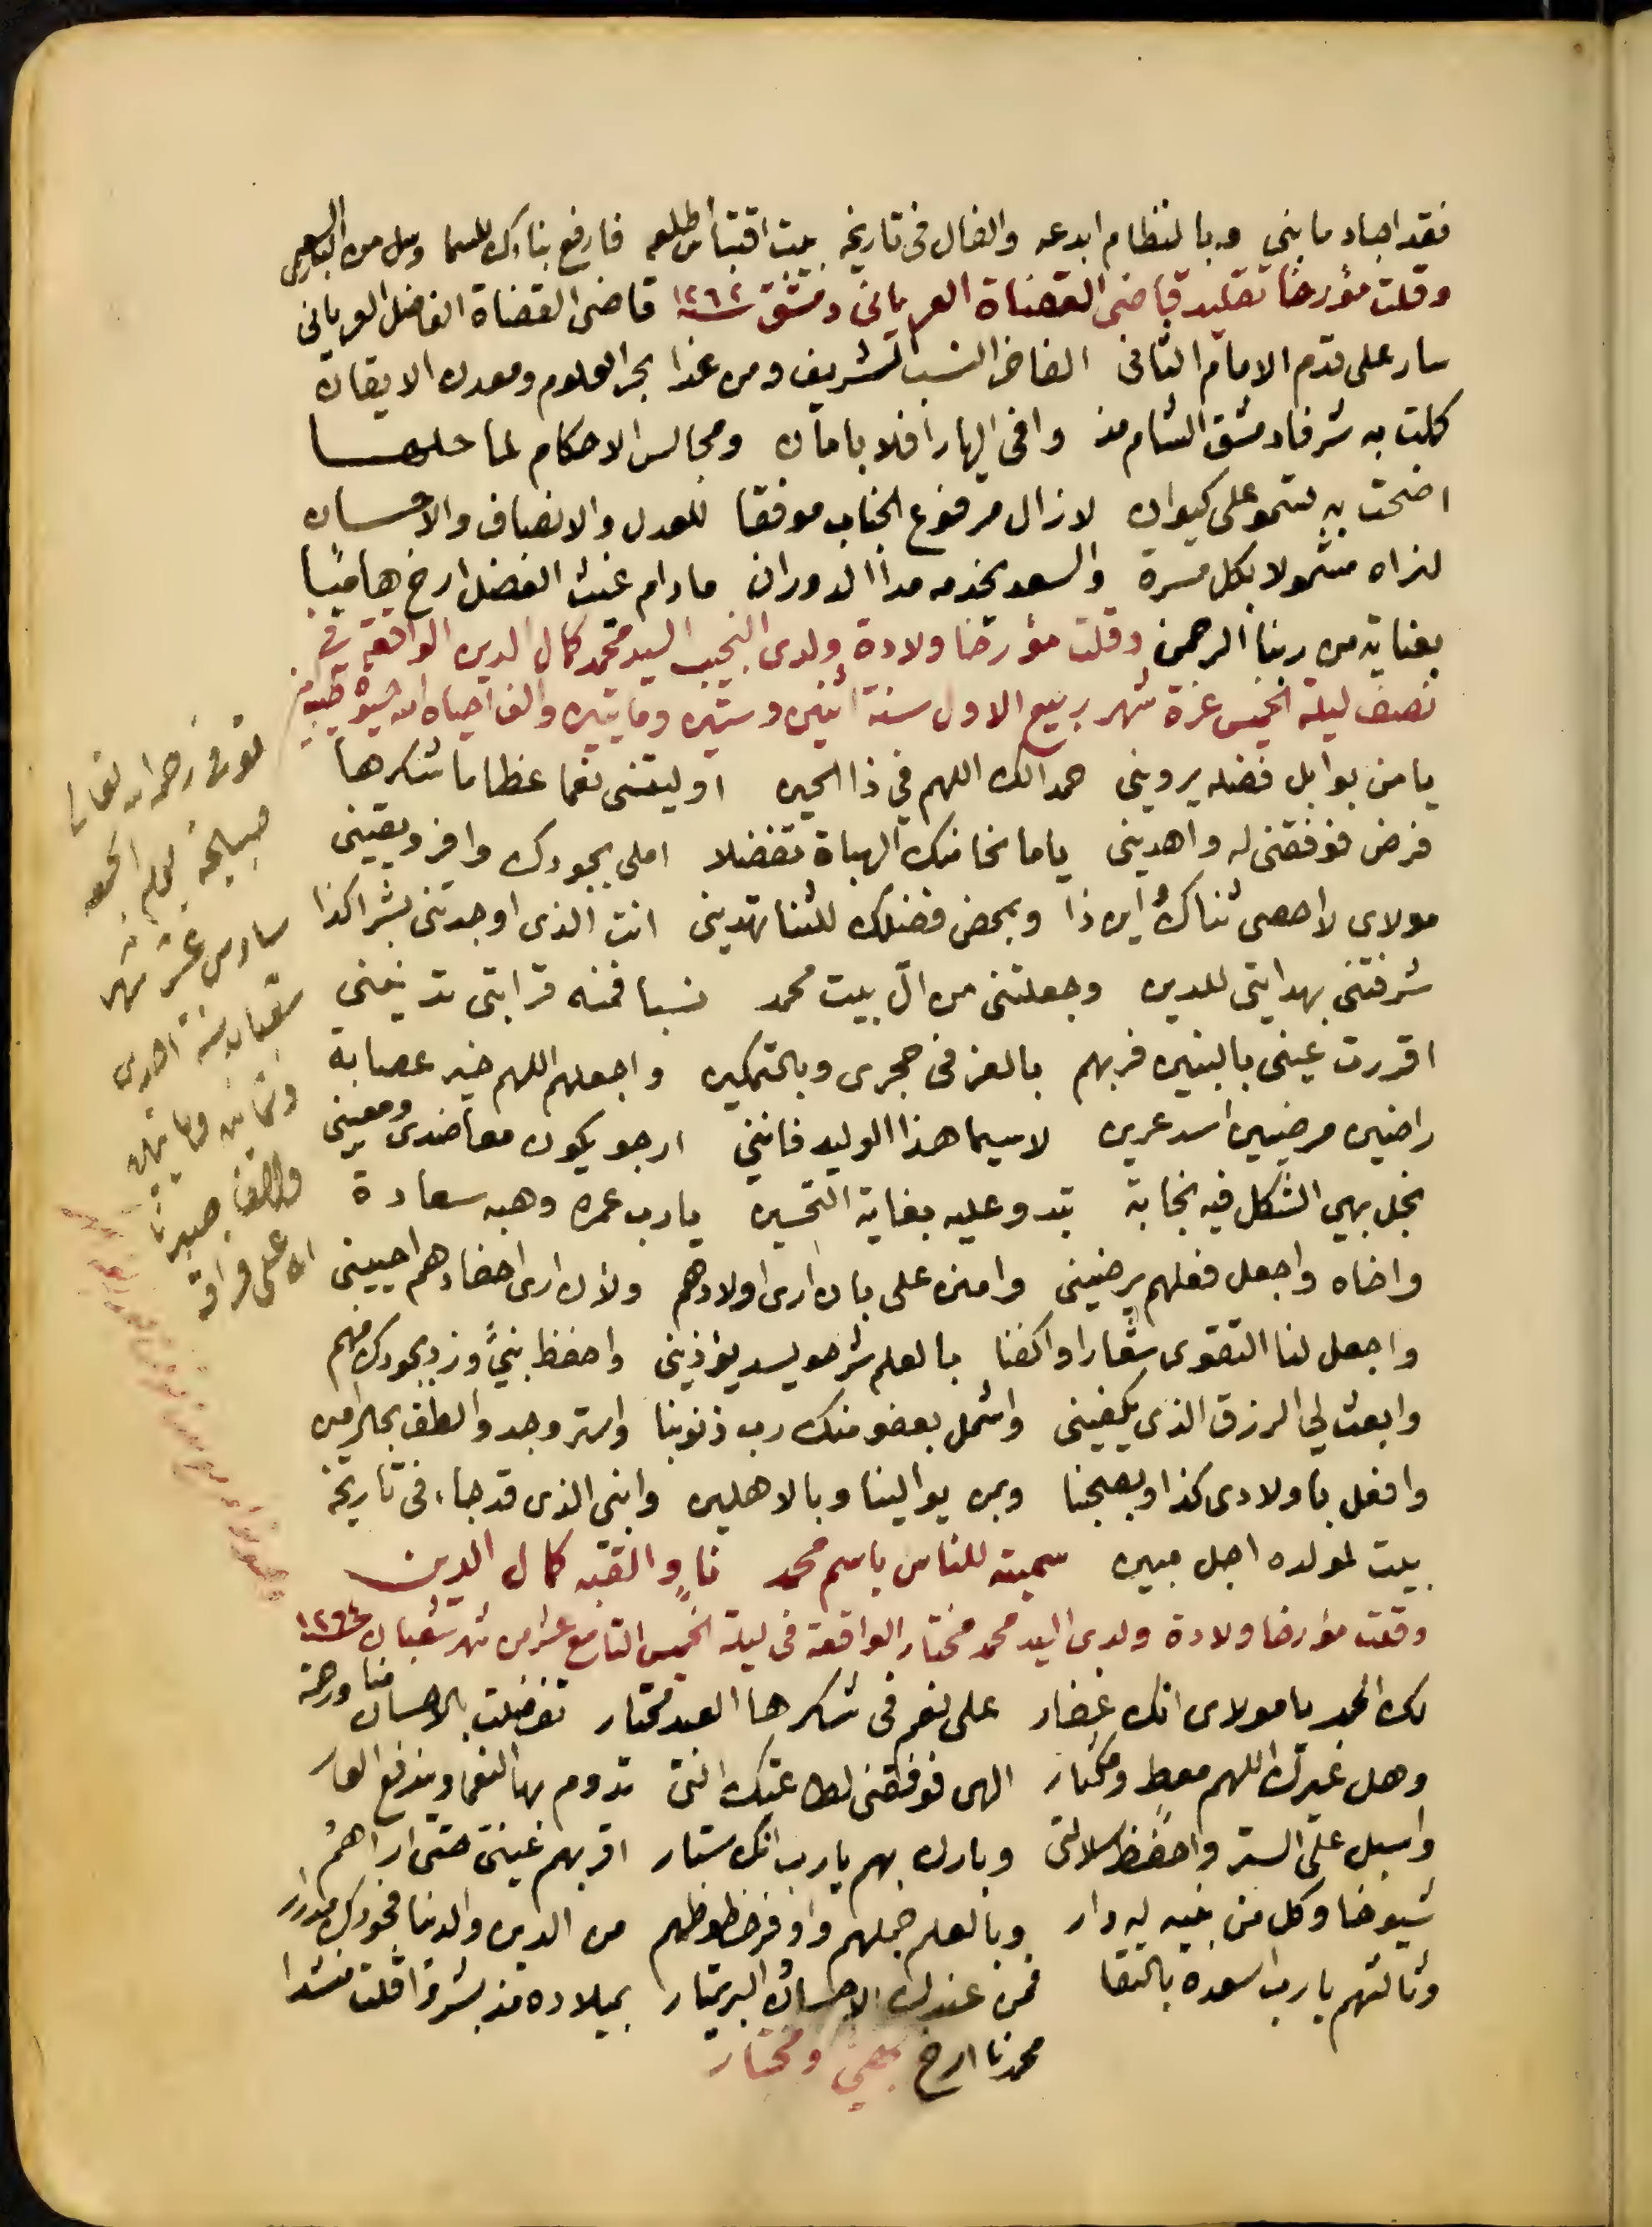 فقد اجاد ما بني وبالنظام ابدعه والفال في تاريخه بيت اقتباس طلعه فارفع بناءك للسما
وقلت مؤرخا تقليد قاضي القضاة العرياني دمشق سنة ١٢٦٢ قاضي القضاة الفاضل العرياني
سار على قدم الامام الثاني الفاضل النسب الشريف ومن غدا بحر العلوم ومعدن الايقان
كملت به شرفا دمشق الشام مذ وافى اليها رافلا بامان ومجالس الاحكام لما حلها
اضحت به تسمو على كيوان لا زال مرفوع الجناب موفقا للعدل والانصاف والاحسان
لنراه مشمولا بكل مسرة والسعد يخدمه مدا الدوران ما دام غيث الفضل ارخ هاميا
بعناية من ربنا الرحمن وقلت مؤرخا ولادة ولدي النجيب السيد محمد كمال الدين الواقعة في
نصف ليلة الخميس غرة شهر ربيع الاول سنة اثنين وستين ومايتين والف احياه الله حيوة طيبة
يا من بوابل فضله يرويني حمدا لك اللهم في ذا الحين اوليتني نعما عظاما شكرها
فرض فوفقني له واهديني ياما نحا منك الهباة تفضلا املي بجودك وافر ويقيني
مولاي لا احصي ثناك اين ذا وبمحض فضلك للثنا تهديني انت الذي اوجدتني بشرا كذا
شرفتني بهدايتي للدين وجعلتني من ال بيت محمد نسبا فمنه قرابتي تدنيني
اقررت عيني بالبنين فربهم بالعز في حجري وبالتمكين واجعلهم اللهم خير عصابة
راضين مرضيين اسد عرين لا سيما هذا الوليد فانني ارجو يكون معاضدي ومعيني
نجل بهي الشكل فيه نجابة تبدو عليه بغاية التحسين يا رب عمره وهبه سعادة
واخاه واجعل فعلهم يرضيني وامنن علي بان ارى اولادهم ولان ارى احفادهم احييني
واجعل لنا التقوى شعارا واكفنا بالعلم شر حويسد يؤذيني واحفظ بنيّ وزد بجودك منهم
وابعث لي الرزق الذي يكفيني واشمل بعفو منك رب ذنوبنا واستر وجد والطف بحال امين
وافعل باولادي كذا وبصحبنا وبمن يوالينا وبالاهلين وابني الذي قد جاء في تاريخه
بيت لمولده اجل مبين سميته للناس باسم محمد ناو والقبه كمال الدين
وقلت مؤرخا ولادة ولدي السيد محمد مختار الواقعة في ليلة الخميس التاسع عشر من شهر شعبان سنة ١٢٦٤
لك الحمد يا مولاي انك غفار على نعم في شكرها العبد محتار تفضلت بالاحسان منا ورحمة
وهل غيرك اللهم معط ومكثار الهي فوفقني لطاعتك التي تدوم بها النعما ويندفع العار
واسبل علي الستر واحفظ سلالتي وبارك بهم يا رب انك ستار اقر بهم عيني حتى اراهم
شيوخا وكل من بنيه له دار وبالعلم جملهم واوفر حظوظهم من الدين والدنيا فجودك مدرار
وثالثهم يا رب اسعده بالتقا فمن عندك الاحسان البر يمتار بميلاده مذ بشروا قلت منشدا
محمدنا ارخ بهي ومختار
توفى رحمه الله تعالى
صبيحة يوم الجمعة
سادس عشر شهر
شعبان سنة احدى
وثمانين ومايتين
والف صبرنا
الله على فراقه